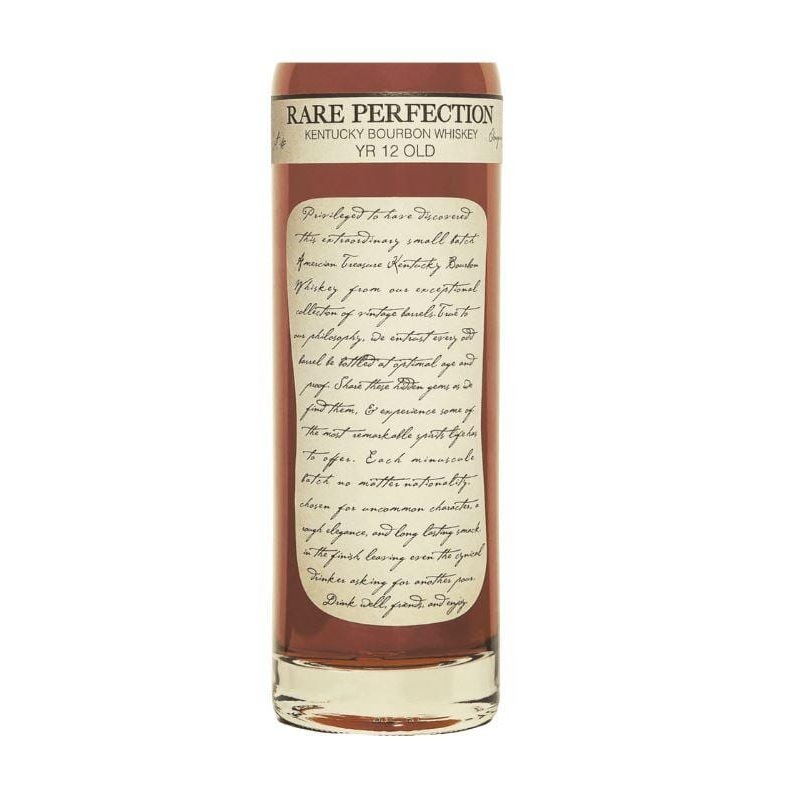 RARE PERFECTION
KENTUCKY BOURBON WHISKEY
YR 12 OLD
Privileged to have discovered
this extraordinary small batch
Amercian Treasure Kentucky Bourbon
Whiskey from our exceptional
collection of vintage barrels. True to
our philosophy, we entrust every odd
barrel be bottled at optimal age and
proof. Share these hidden gems as we
find them, & experience some of
the most remarkable spirits life has
to offer. Each minuscule
batch no matter nationality.
chosen for uncommon character, a
rough elegance, and long lasting smack
in the finish leaving even the cynical
drinker asking for another pour.
Drink well, friends, and enjoy.